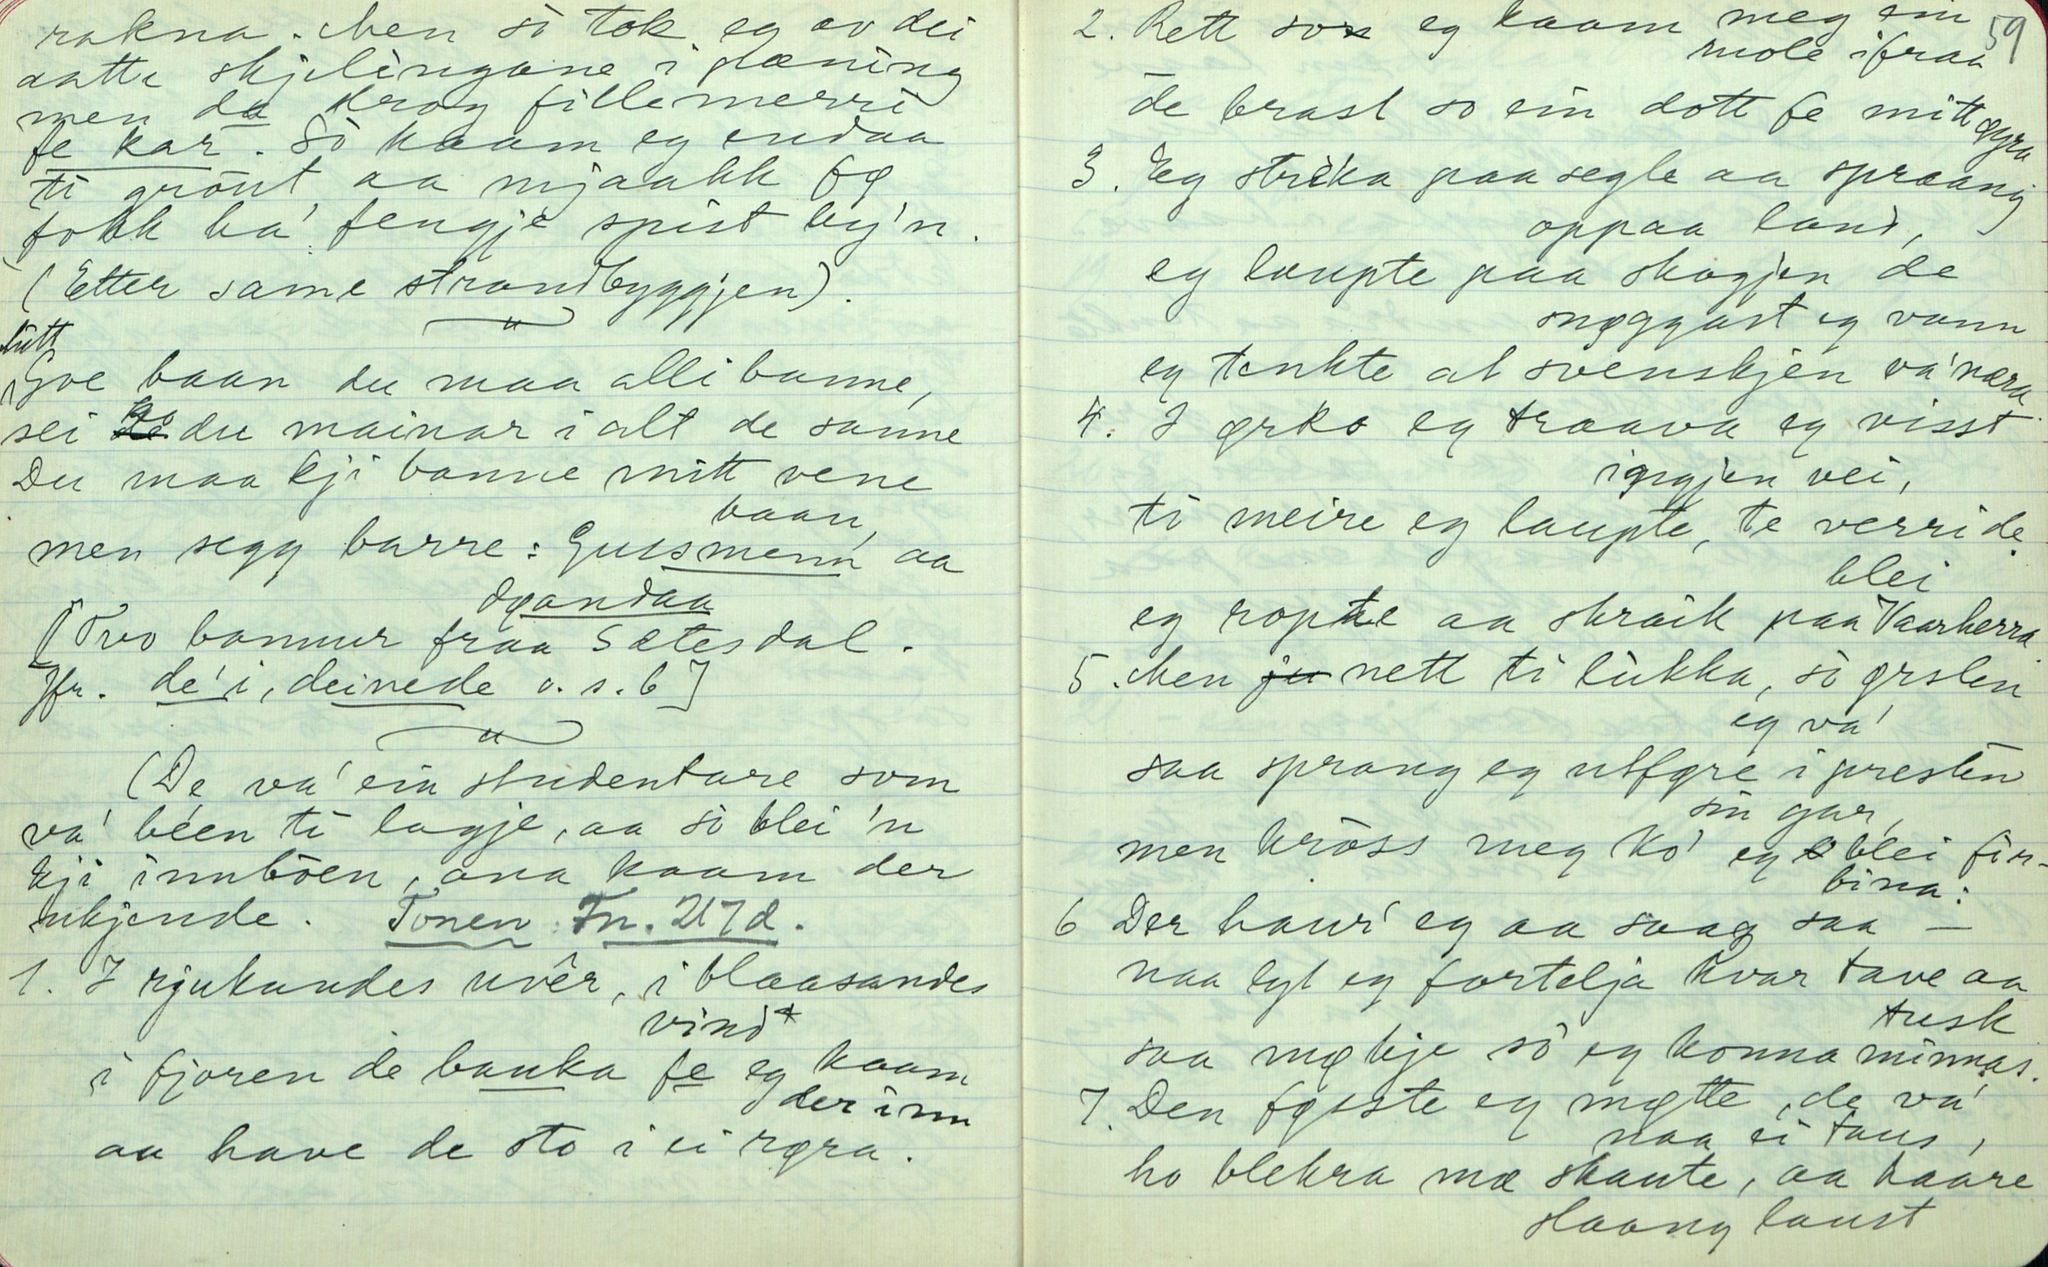 rakna. Men sò tok eg av dei
aatte skjelingane i glæning
men da drog fillemerri
fe kar. Sò kaam eg endaa
ti grönt aa mjaakk fø
fokk ha' fengje spist by'n.
(Etter same strandbyggjen).
"
litt
Goe baan du maa alli banne,
sei ka du mainar i alt de sanne
Du maa kji banne mitt vene
baan,
men segg barre: Gussmenn aa
døandaa
[Tvo bannur fraa Sætesdal.
Jfr. de' i, deinede o.s.b]
"
(De va' ein studentare som
va' been ti lagje, aa sò blei 'n
kji innbòen, ana kaam der
ukjende. Tonen: Fn. 217d.
1. I rjukandes uvêr, i blaasandes
vind*
i fjoren de banka fe eg kaam
der inn
aa have de sto i ei røra.
59
2. Rett som eg kaam meg ein
mole ifraa
de brast so ein dott fe mitt øyra
3. Eg strika paa segle aa spraang
oppaa land,
eg laupte paa skogjen de
snøggast eg vann
eg tenkte at svenskjen va' næra.
4. I ørko eg traava eg visst
ingjen vei,
ti meire eg laupte, te verri de
blei
eg ropte aa skraik paa Vaarherra.
5. Men ju nett ti lukka, sò ørslen
eg va'
saa sprang eg utføre i presten
sin gar,
men kròss meg kò eg blei fir-
bina:
6 Der haur' eg aa saag saa —
naa lyt eg fortelja kvar tave aa
tusk
saa møkje sò eg konna minnas.
7. Den føste eg møtte, de va'
naa ei taus,
ho blekra mæ skaute, aa haare
slaang laust